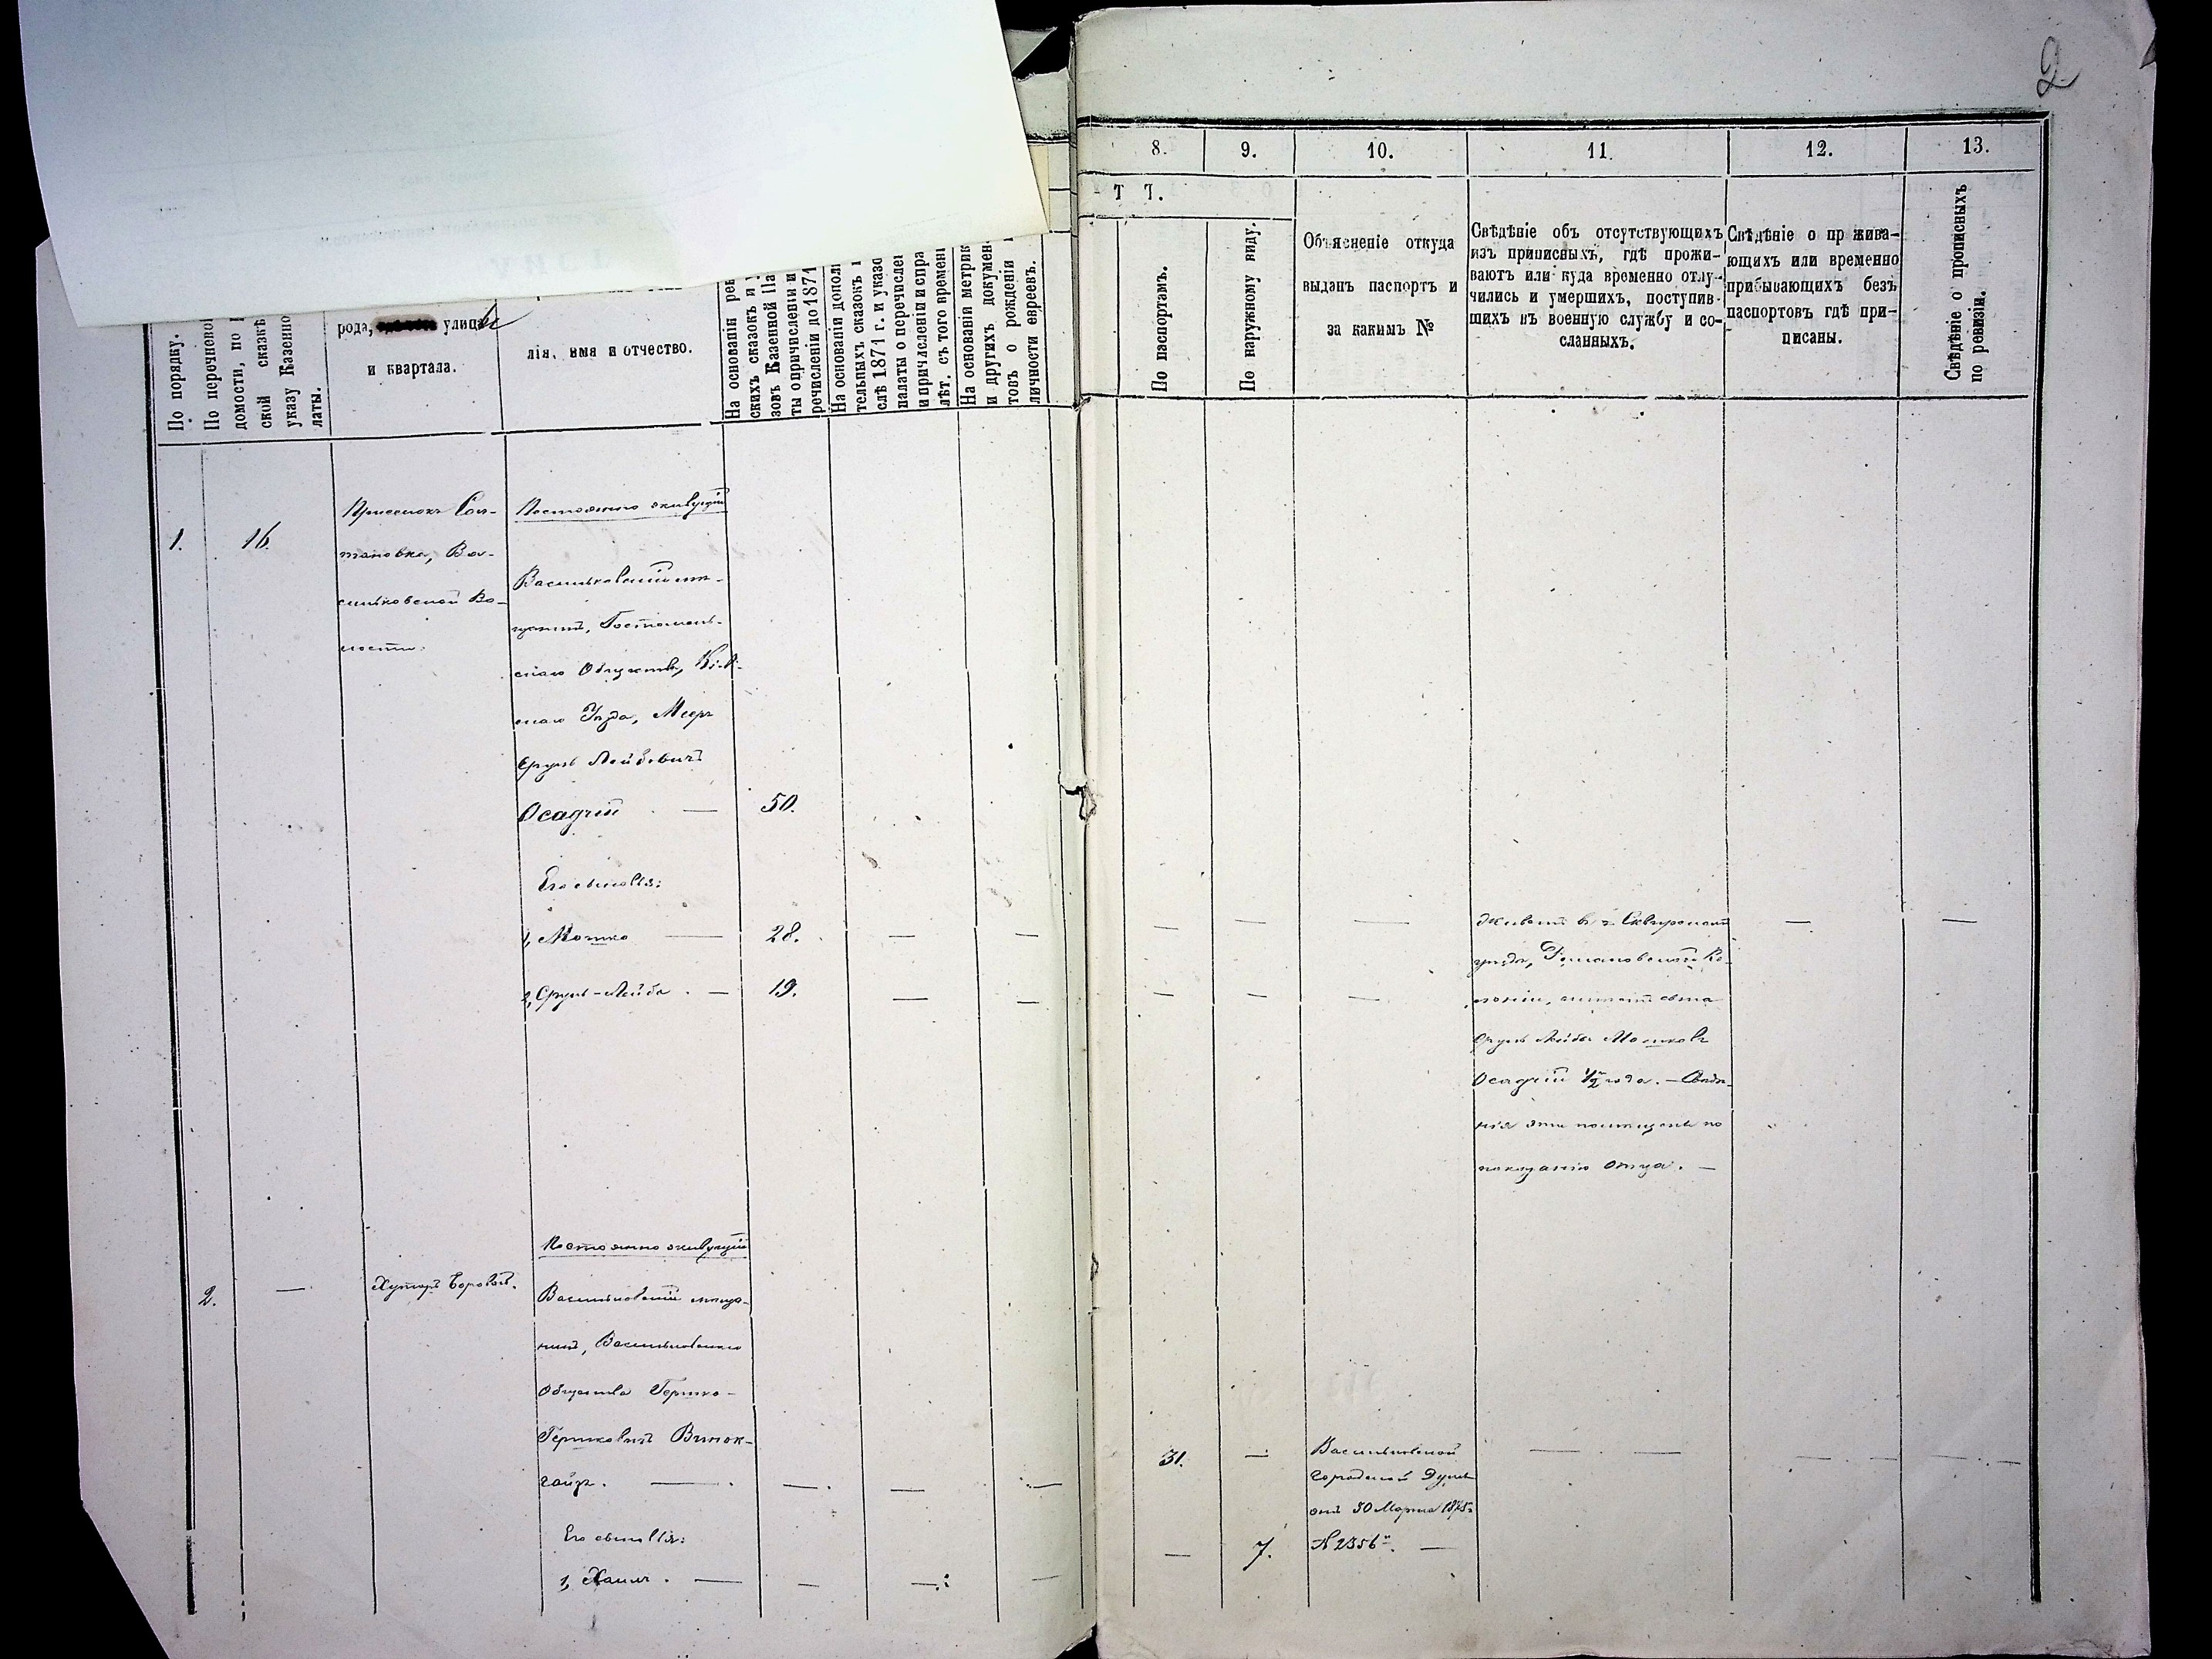 2
8.
9.
10.
11.
12.
13.
Т Ъ.
По порядку.
По перечневой
домости, по
ской сказкѣ
указу Казенно
латы.
рода, улица
и квартала.
лія, имя и отчество.
На основаніи рев
скихъ сказокъ и
зовъ Казенной Па
ты о причисленіи и
речисленіи до 1871
На основаніи допол
тельныхъ сказокъ
слѣ 1871 г. и указо
палаты о перечислен
и причисленіи и спра
лѣт. съ того времен
На основаніи метрик
и другихъ докумен
товъ о рожденіи
личности евреевъ.
По паспортамъ.
По наружному виду.
Объясненіе откуда
выданъ паспортъ и
за какимъ №
Свѣдѣніе объ отсутствующихъ
изъ приписныхъ, гдѣ прожи-
ваютъ или куда временно отлу-
чились и умершихъ, поступив-
шихъ въ военную службу и со-
сланныхъ.
Свѣдѣніе о прожива-
ющихъ или временно
прибывающихъ безъ
паспортовъ гдѣ при-
писаны.
Свѣдѣніе о прописныхъ
по ревизіи.
1.
16.
Приселокъ Сол-
тановка, Ва-
сильковской Во-
лости.
Постоянно живущій
Васильковскій мѣ-
щанинъ, Гостомель-
скаго Общества, Кіев-
скаго Уѣзда, Мееръ
Сруль Лейбовичъ
Осадчій — 50.
Его сыновья:
1, Мошко — 28. — — — — —
2, Сруль-Лейба . — 19. — — — — —
Живетъ въ Сквирскомъ
уѣздѣ, Романовской Ко-
лоніи, имѣетъ сына
Сруль Лейба Мошковъ
Осадчій ½ года. — Свѣдѣ-
нія эти помѣщены по
показанію отца. —
2. — Хуторъ Боровой.
Постоянно живущій
Васильковскій мѣща-
нинъ, Васильковскаго
Общества Гершко-
Гершковичъ Винок-
гойзъ. — — — —
31. —
Васильковской
городской Думы
отъ 30 Марта
№ 2356. —
Его сыновья:
1, Хаимъ . — — — —
— 7.